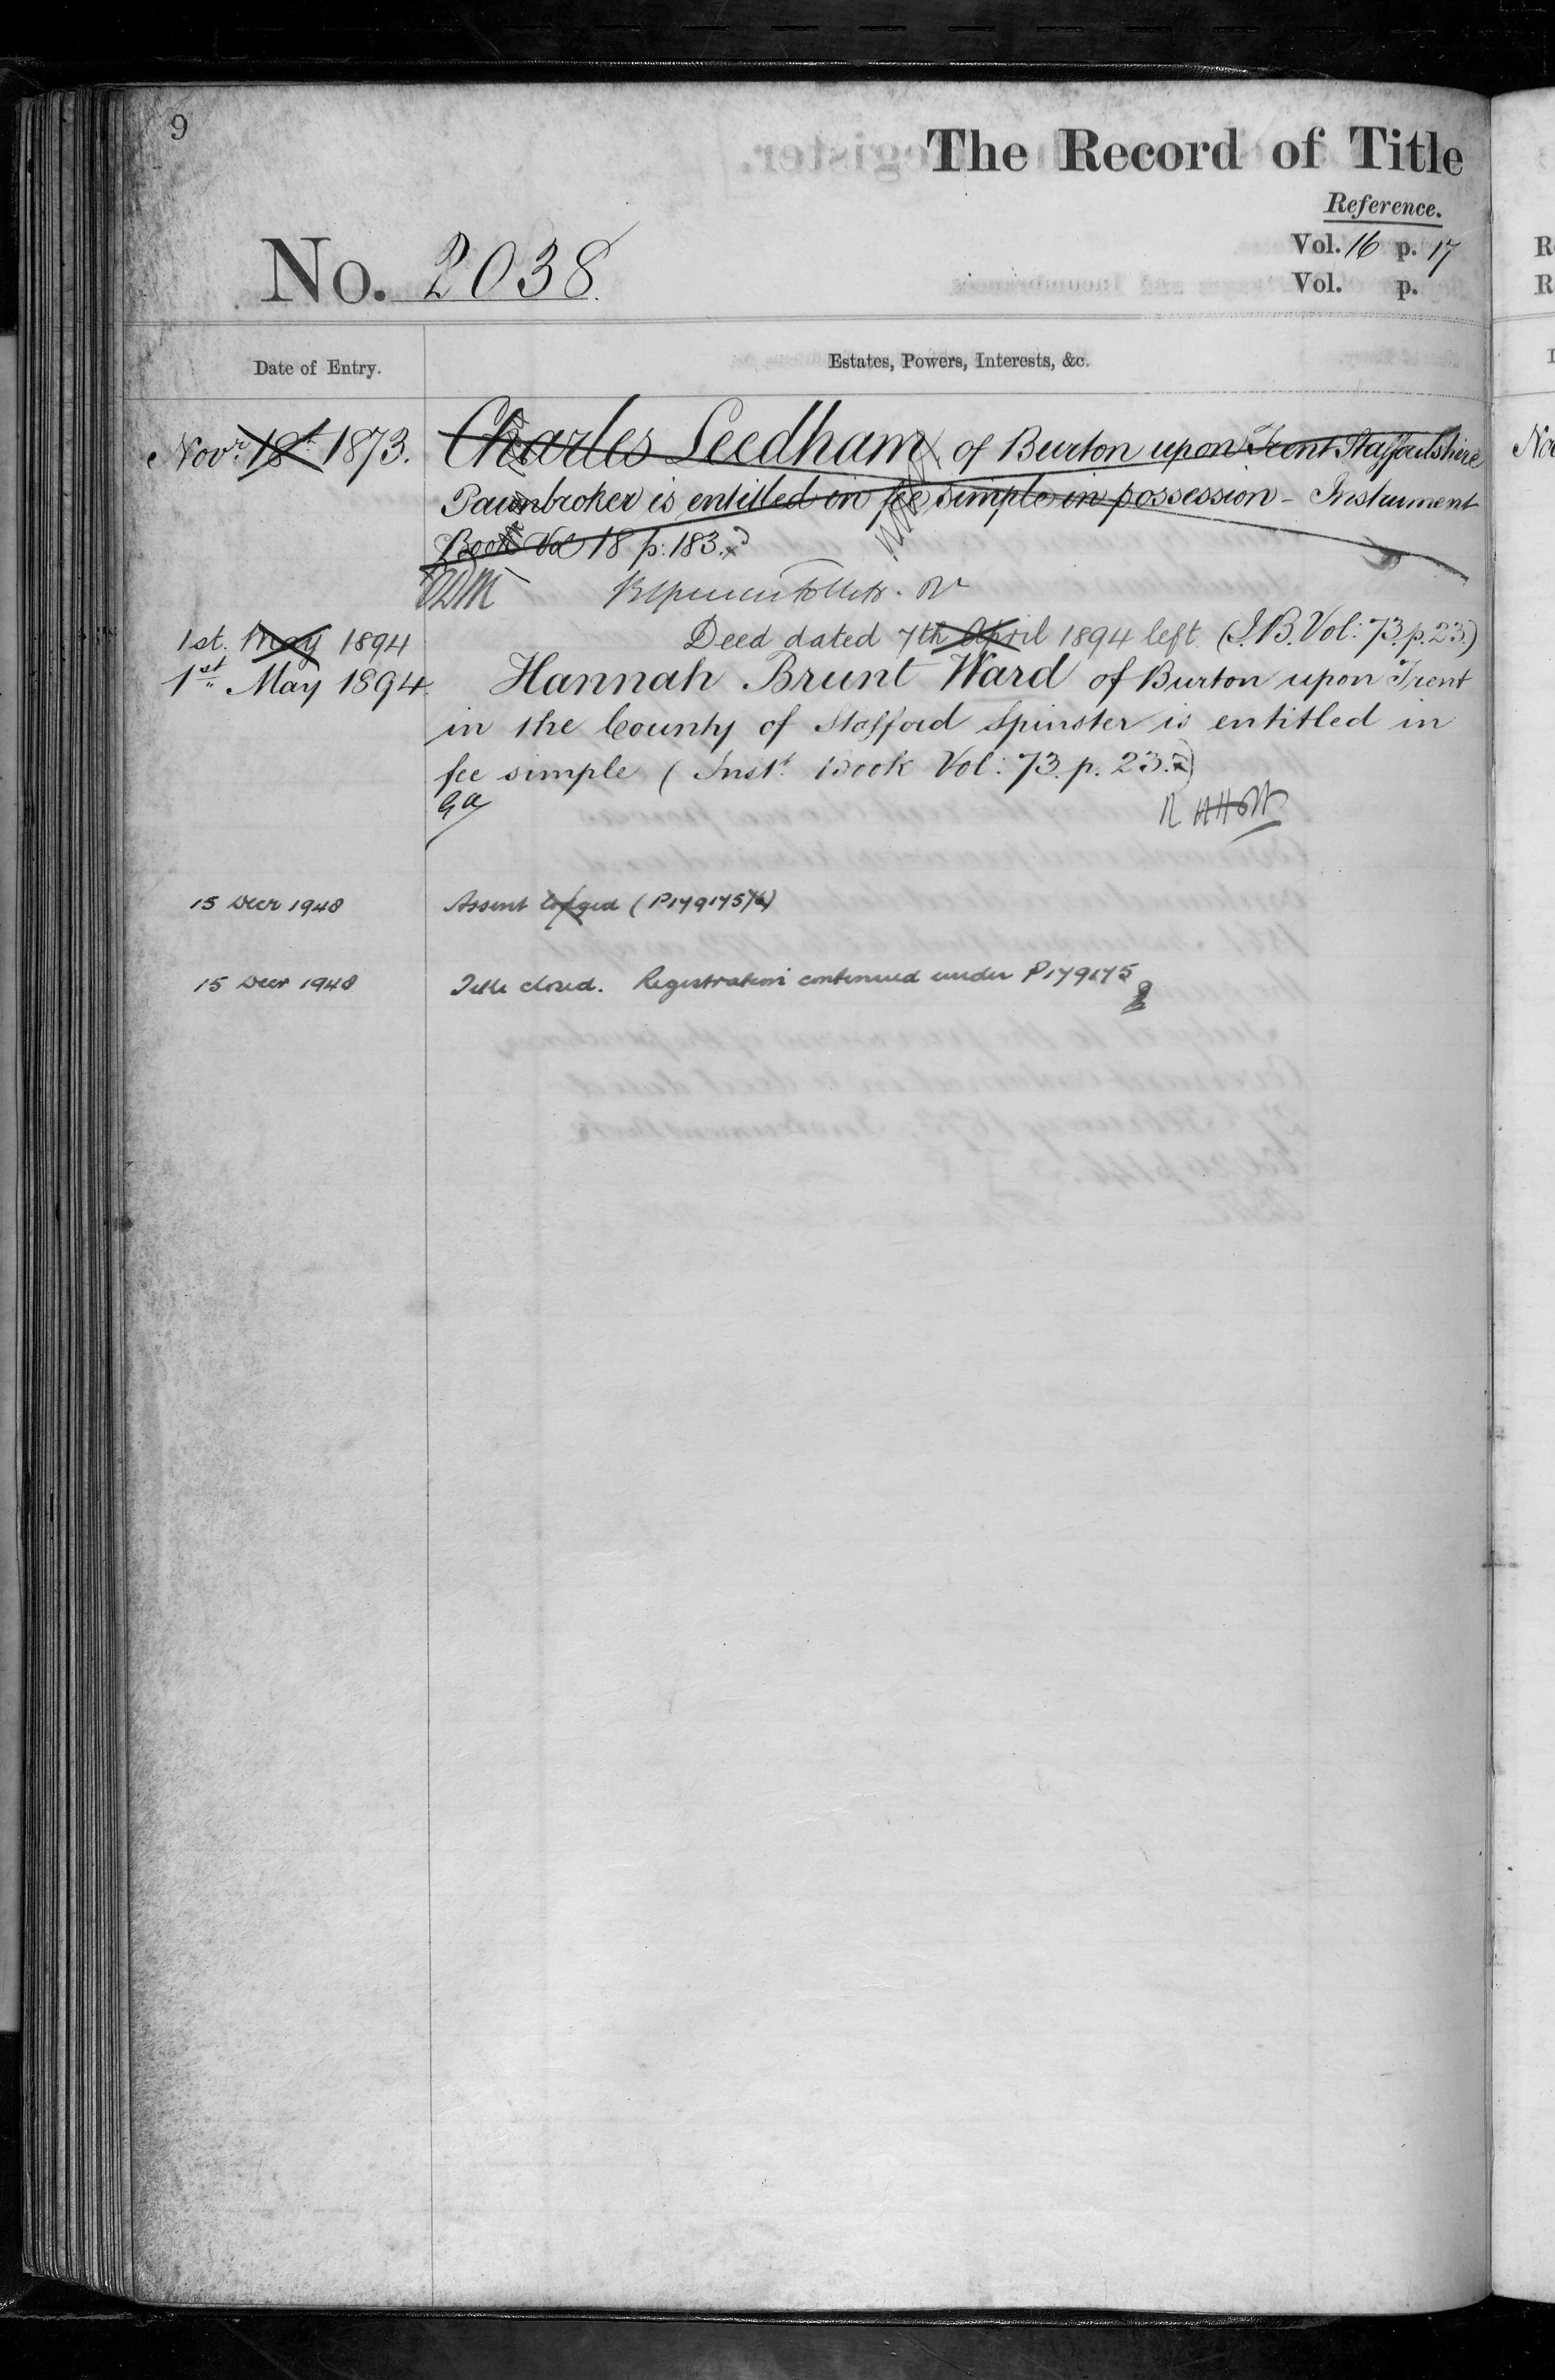 9
The Record of Title
Reference.
No. 2038.
Vol. 16 p. 17
Vol. p.
Date of Entry.
Estates, Powers, Interests, &c.
Novr. 18th 1873.
Charles Leedham of Burton upon Trent Staffordshire
Pawnbroker is entitled in fee simple in possession - Instrument
Book Vol 18 p: 183.
1st. May 1894
Deed dated 7th April 1894 left. (I.B. Vol: 73. p. 23.)
1st. May 1894.
Hannah Brunt Ward of Burton upon Trent
in the County of Stafford Spinster is entitled in
fee simple (Inst. Book Vol: 73. p. 23.)
15 Decr 1948
Assent lodged (P179175/6)
15 Decr 1948
Title closed. Registration continued under P179175